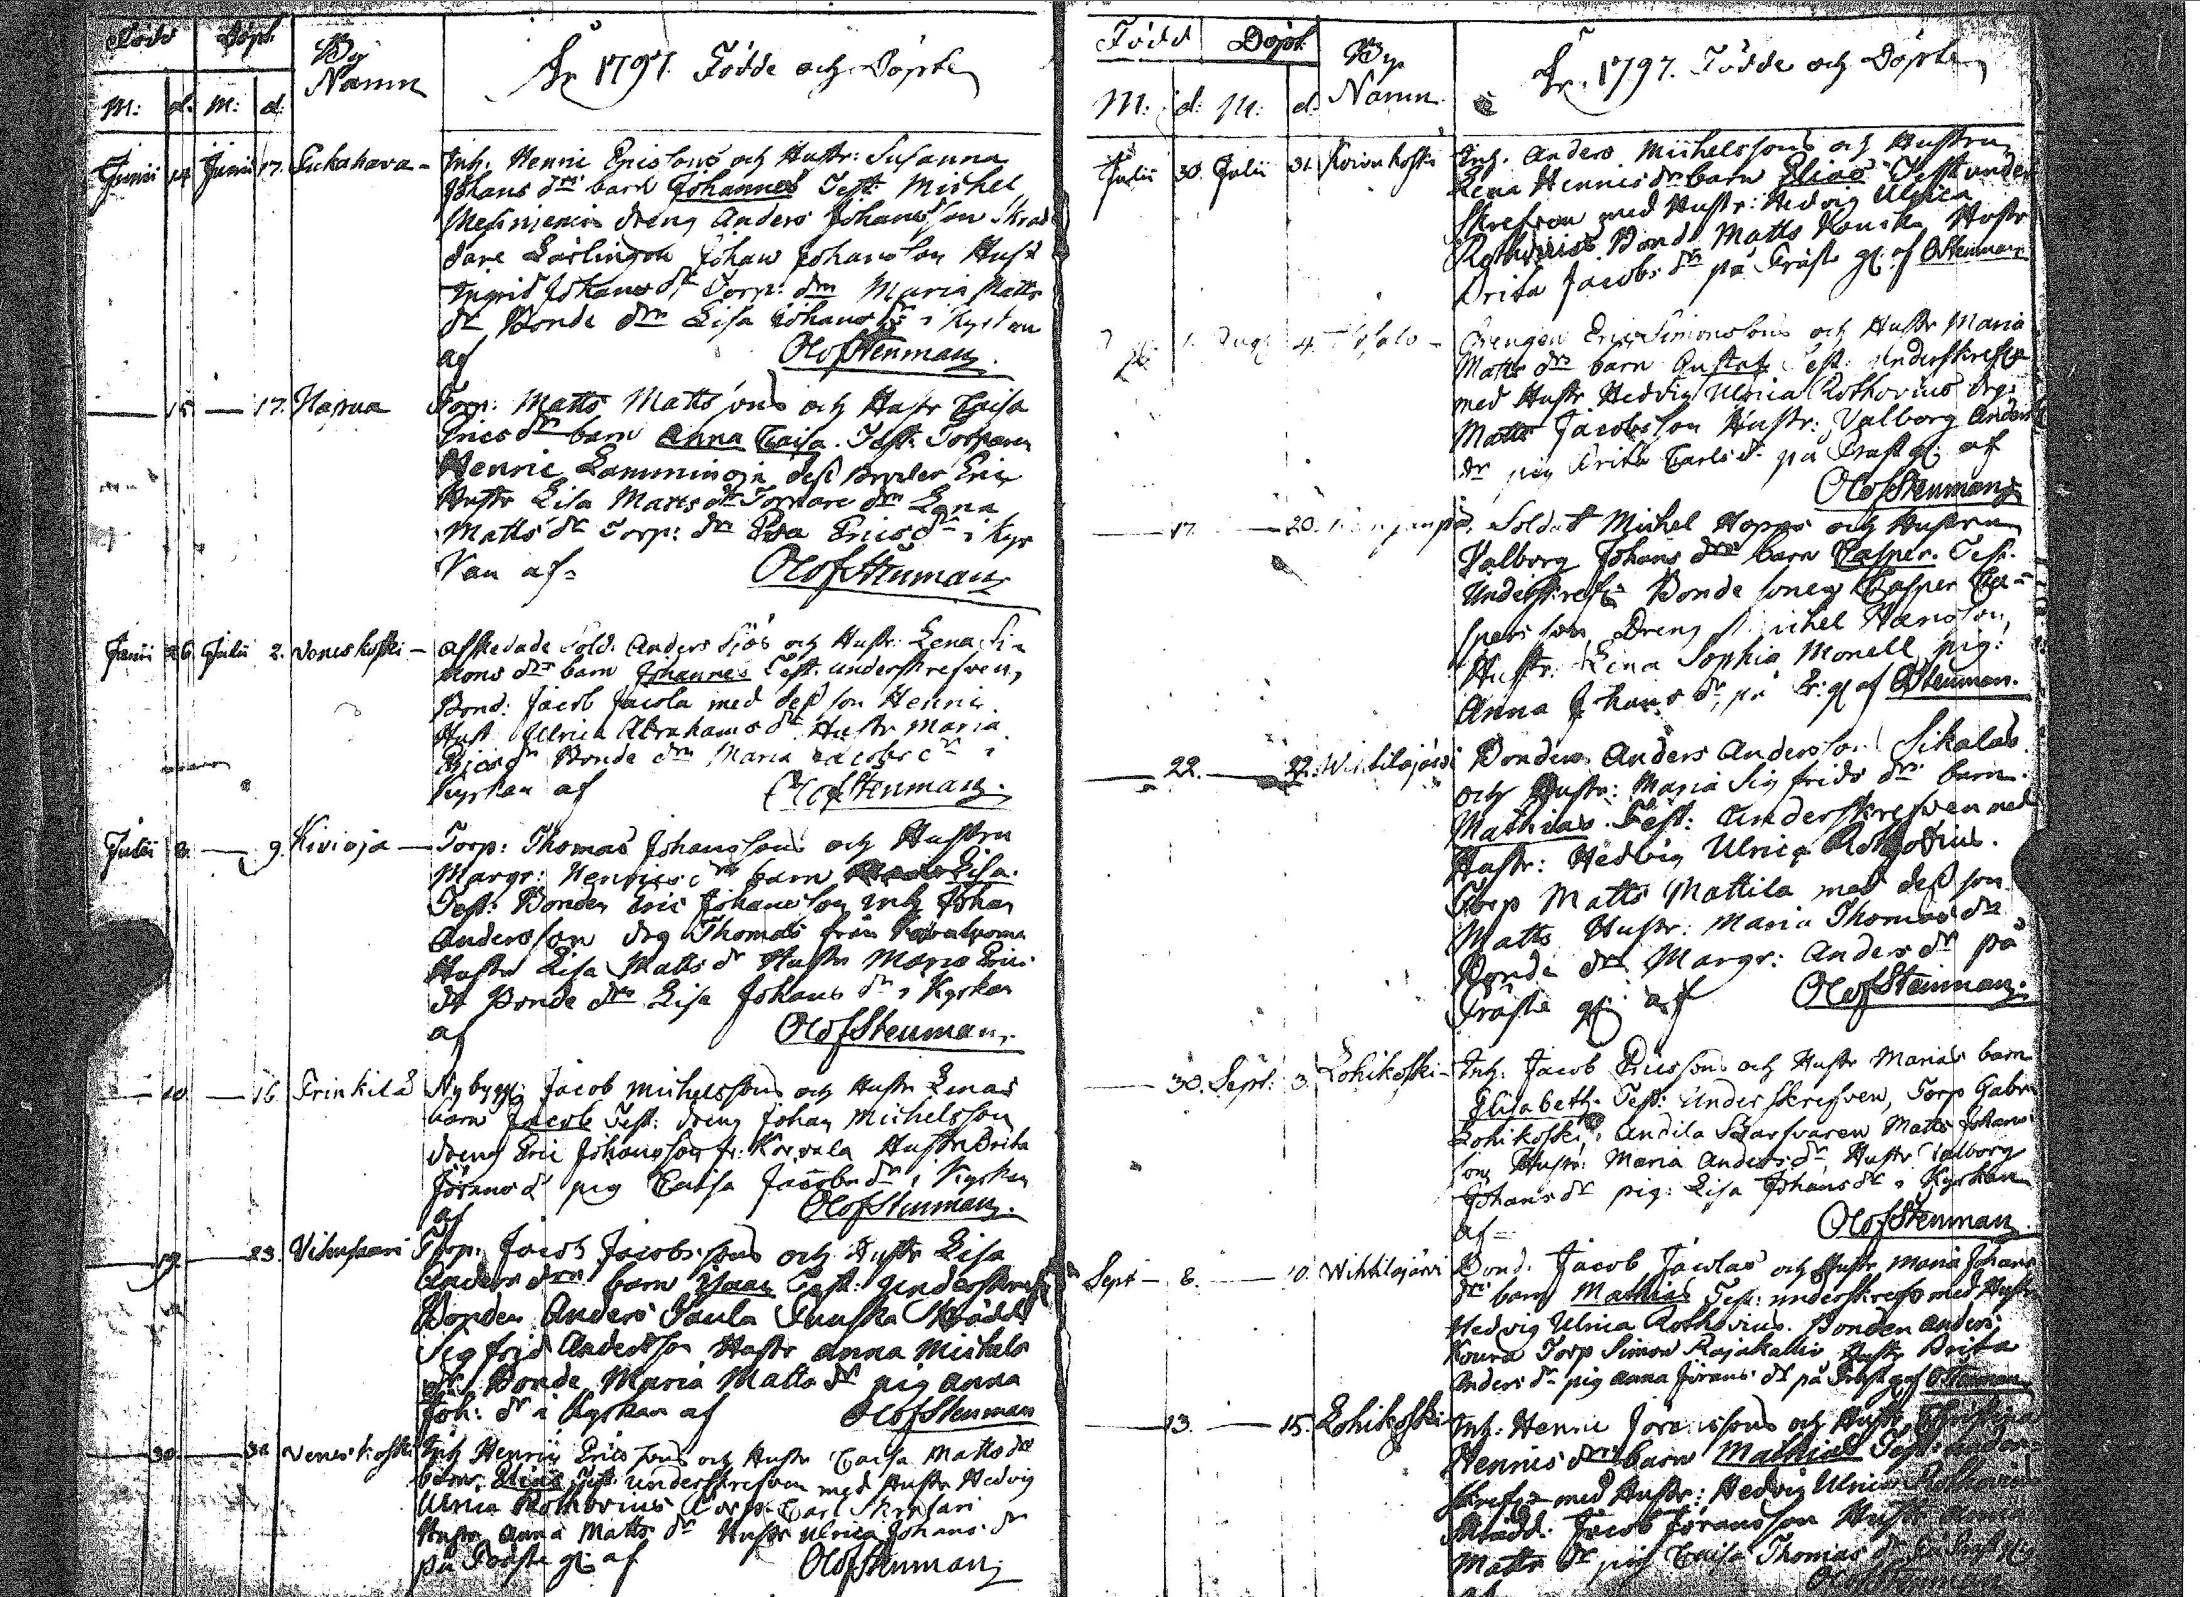 Född Döpt By Namn År 1797. Födde och Döpte
M: d. M: d:
Junii 14 Junii 17. Inh. Henric Ericssons och Hustr: Susanna
Johans drs barn Johannes Test: Michel
dreng Anders Johansson
dare Lärlingen Johan Johansson Hust
Ingrid Johans dr Torp: drn Maria Matts
dr Bonde drn Lisa Johans dr i Kyrkan
af Olof Stenman.
15 17. Hapua Torp: Matts Mattssons och Hustr Caisa
Erics drs barn Anna Caisa. Test: Torparen
Henric Lamminoja dess Broder Eric
Hustr Lisa Matts dr Torpare drn Lena
Matts dr Torp: drn Eva Erics dr i Kyr
kan af Olof Stenman
Junii 26 Julii 2. Veneskoski Afskedade Sold. Anders Sjös och Hustr: Lena Si-
mons drs barn Johannes Test: underskrefven,
Bond: Jacob Jacola med dess son Henric.
Hust Ulrica Abrahams dr Hustr Maria
Erics dr Bonde drn Maria Jacobs dr i
Kyrkan af Olof Stenman.
Julii 8. 9. Kivioja Torp: Thomas Johanssons och Hustru
Margr: Henrics drs barn Lisa.
Test: Bonden Eric Johansson Inh Johan
Andersson drg Thomas från
Hustr Lisa Matts dr Hustr Maria Erics
dr Bonde drn Lisa Johans dr i Kyrkan
af Olof Stenman.
10 16 Frinkilä Nybygg: Jacob Michelssons och Hustr Lenas
barn Jacob Test: dreng Johan Michelsson
dreng Eric Johansson fr: Korvala Hustr Brita
Jörans dr pig Caisa Jacobs dr i Kyrkan
af Olof Stenman.
19. 23. Torp: Jacob Jacobssons och Hustr Lisa
Anders drs barn Isaac Test: Underskref
Bonden Anders Skrädd
Sigfrid Andersson Hustr Anna Michels
dr Bonde Maria Matts dr pig Anna
Joh: dr i Kyrkan af Olof Stenman
30. 31 Veneskoski Inh Henric Ericssons och Hustr Caisa Matts drs
barn, Elias Test: underskrefven med Hustr Hedvig
Ulrica Rothovius Torp: Carl
Hustr Anna Matts dr Hustr Ulrica Johans dr
på Präste g: af Olof Stenman
Född Döpt By Namn År 1797. Födde och Döpte
M: d: M: d.
Julii 30. Julii 31. Koivukoski Inh. Anders Michelssons och Hustru
Lena Henrics drs barn Elias Test under
skrefven med Hustr: Hedvig Ulrica
Rothovius. Bond Matts Hustr
Brita Jacobs dr på Präste g: af O Stenman
1. Aug: 4. Drengen Eric Simonssons och Hustr Maria
Matts drs barn Gustaf Test: Underskrefven
med Hustr Hedvig Ulrica Rothovius drg:
Matts Jacobsson Hustr: Valborg Anders
dr pig Brita Carls dr på Präst g: af
Olof Stenman
17. 20. Soldat Michel Hoppas och Hustru
Valborg Johans drs barn Casper. Test:
Underskref: Bonde sonen Casper Ca-
spersson, Dreng Michel Hansson,
Hustr: Lena Sophia Monell, pig:
Anna Johans dr, på Pr: g: af O Stenman.
22. 22. Wihtilajärvi Bonden Anders Andersson Sikalas
och Hustr: Maria Sigfrids drs barn
Mathias. Test: Underskrefven med
Hustr: Hedvig Ulrica Rothovius.
Torp Matts Mattila med dess son
Matts Hustr: Maria Thomas dr
Bonde drn Margr: Anders dr på
Präste g: af Olof Stenman.
30. Sept: 3. Lohikoski Inh: Jacob Ericssons och Hustr Marias barn
Elisabeth. Test: Underskrefven, Torp Gabr
Lohikoski, Matts Johans
son, Hustr: Maria Anders dr, Hustr Valborg
Johans dr pig: Lisa Johans dr i Kyrkan
af Olof Stenman.
Sept 8. 10. Wihtilajärvi Bond. Jacob Jacolas och Hustr Maria Johans
drs barn Mathias Test: underskref med Hustr
Hedvig Ulrica Rothovius. Bonden Anders
Koura Torp Simon Rajakallio Hustr Brita
Anders dr pig Anna Jörans dr på Präst g: af O Stenman
13. 15. Lohikoski Inh: Henric Jöranssons och Hustr Christina
Henrics drs barn Mathias Test: under-
skref: med Hustr: Hedvig Ulrica Rothovius
Skrädd: Jacob Jöransson Hustr Anna
Matts dr pig Caisa Thomas dr på Präst g:
Olof Stenman